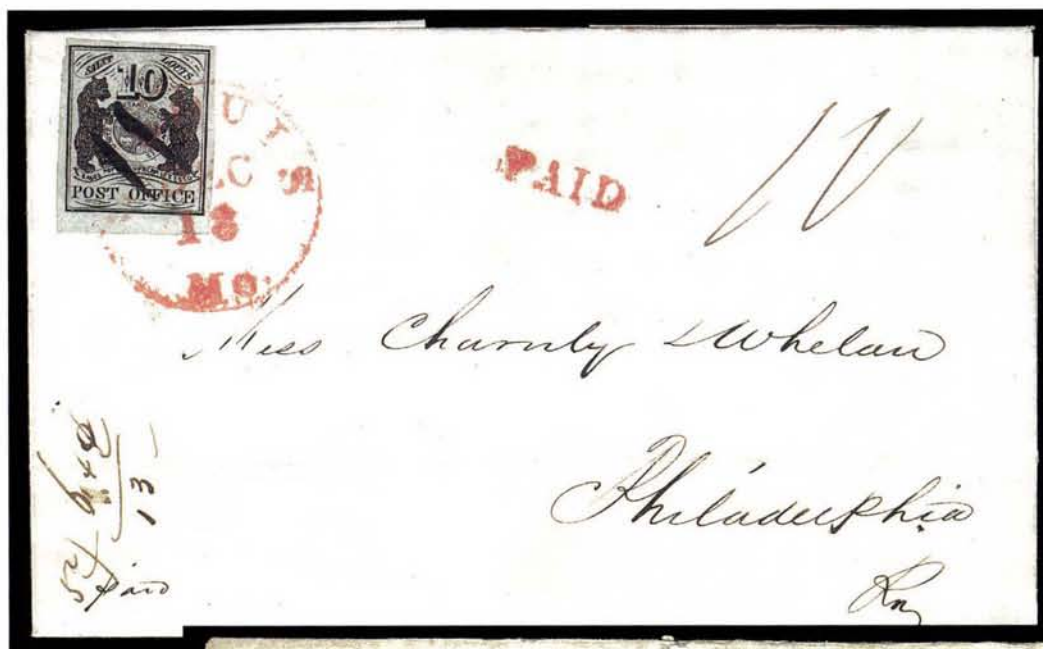 SAINT LOUIS
10
POST OFFICE
PAID
18
MO.
Mess Charnley & Whelan
Philadelphia
13
Paid